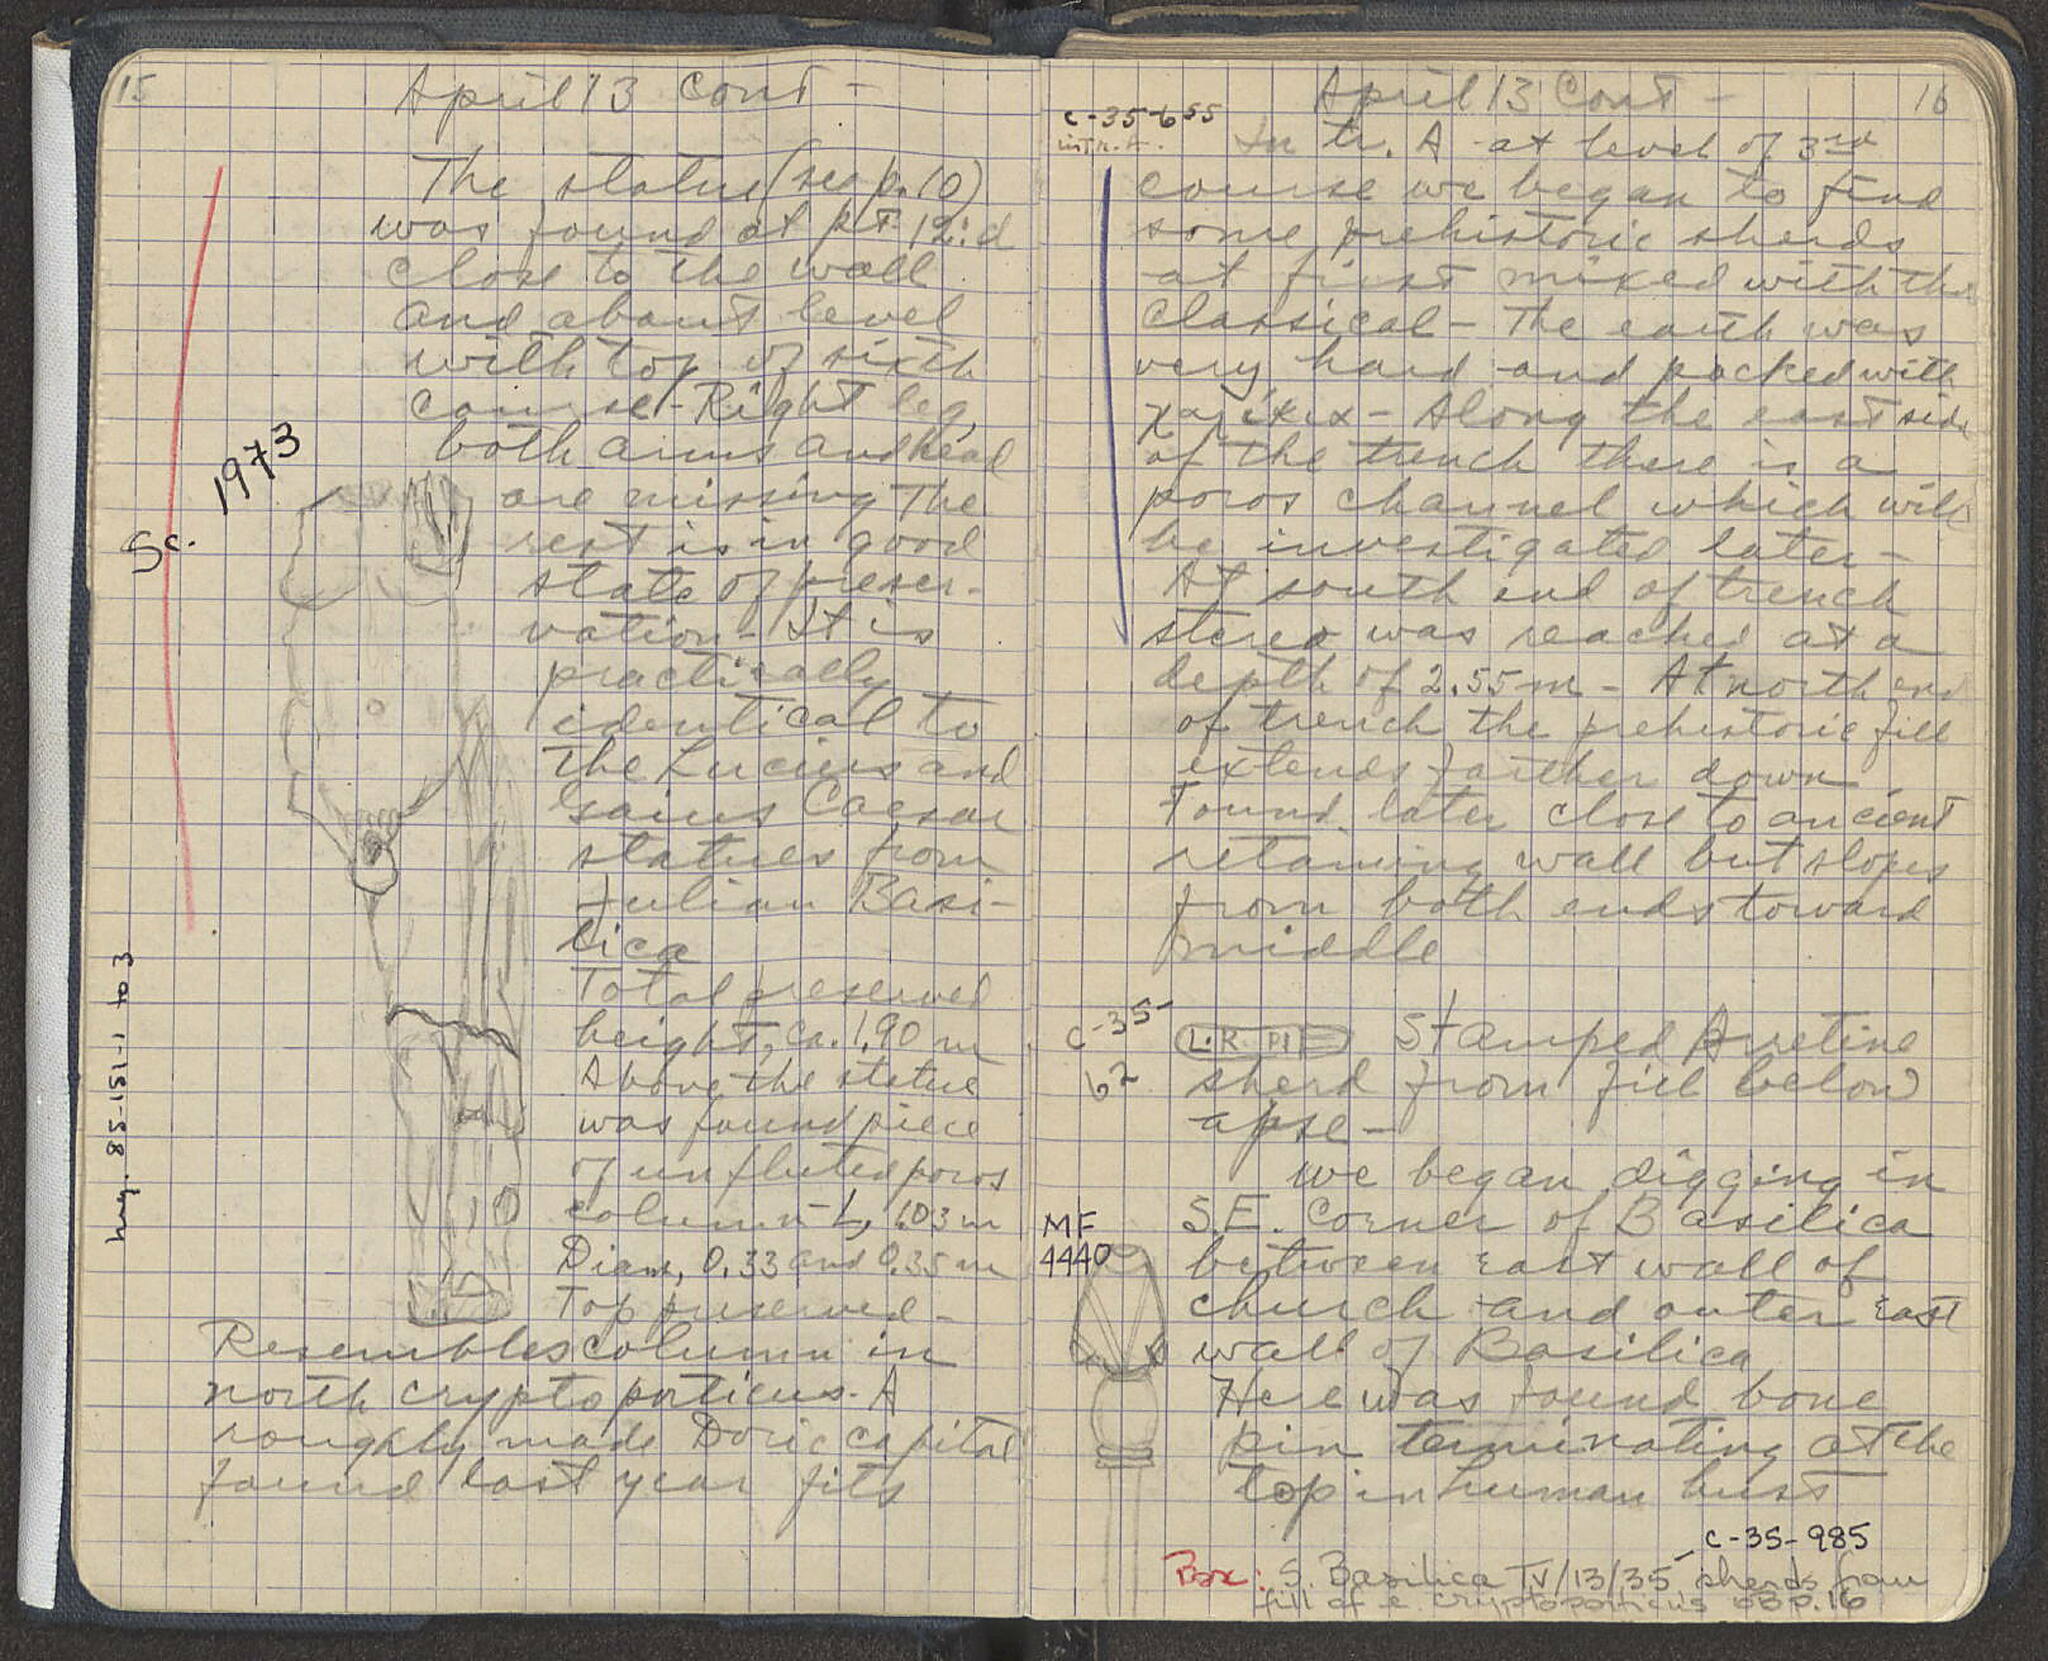 15
April 13 Cont -
The statue (see p. 10)
was found at pt. 12:d
close to the wall
and about level
with top of sixth
course - Right leg,
both arms and head
are missing The
rest is in good
state of preser-
vation - It is
practically
identical to
the Lucius and
Gaius Caesar
statues from
Julian Basi-
lica
Total preserved
height, ca. 1.90 m
Above the statue
was found piece
of unfluted poros
column - L, 1.03 m
Diam, 0.33 and 0.35 m
Top preserved -
Resembles column in
north cryptoporticus. A
roughly made Doric capital
found last year fits
Sc. 1973
neg. 85-151-1 to 3
April 13 Cont -
16
C-35-655
in tr. A.
In tr. A at level of 3rd
course we began to find
some prehistoric sherds
at first mixed with the
Classical - The earth was
very hard and packed with
χαλίκια - Along the east side
of the trench there is a
poros channel which will
be investigated later -
At south end of trench
stereo was reached at a
depth of 2.55 m - At north end
of trench the prehistoric fill
extends farther down
Found later close to ancient
retaining wall but slopes
from both ends toward
middle
C-35-
62
L.R. PI Stamped Arretine
sherd from fill below
apse -
we began digging in
S.E. Corner of Basilica
between east wall of
church and outer east
wall of Basilica
MF
4440
Here was found bone
pin terminating at the
top in human bust
C-35-985
Box: S. Basilica IV/13/35 sherds from
fill of e. cryptoporticus p. 16